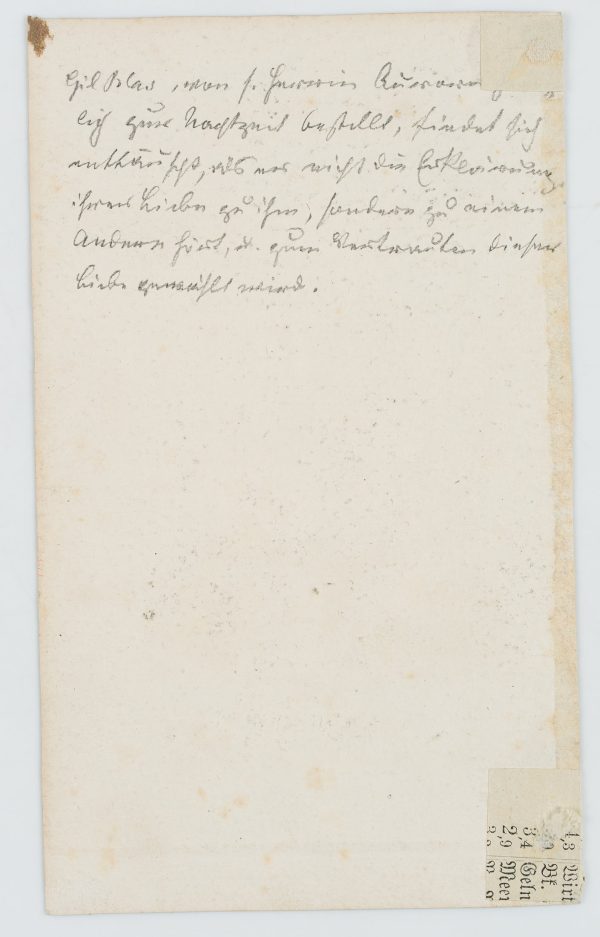 Gil Blas, von s. Herrin Aurora
lich zur Nachtzeit bestellt, findet sich
enttäuscht, als er nicht die Erklärung
ihrer Liebe zu ihm, sondern zu einem
Andern hört, u. zum Vertrauten dieser
Liebe gewählt wird.
1,3 Wirt
Bf.
3,4 Geln
2,9 Meer